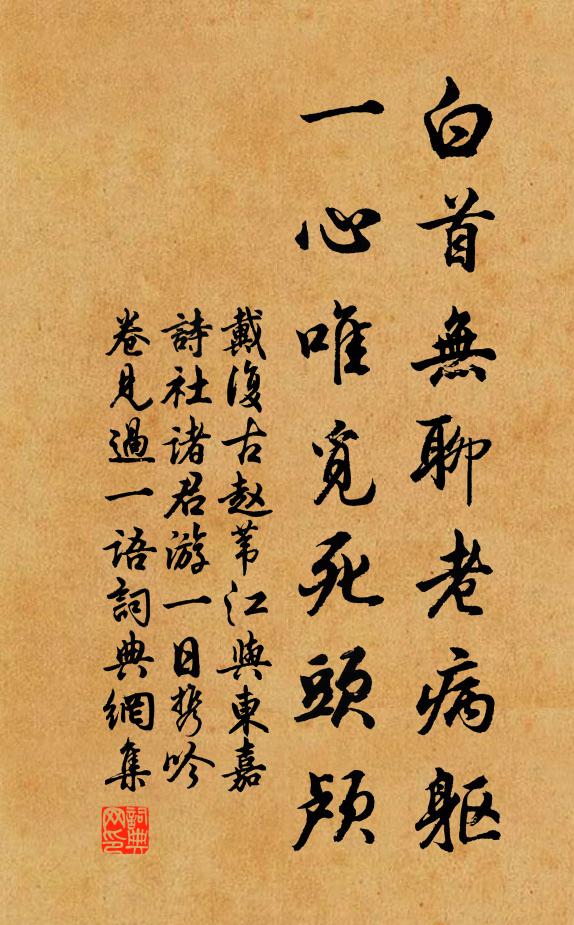 白首無聊老病軀
一心唯覓死頭颅
戴復古赵苇江與東嘉
詩社諸君游一日携吟
卷见過一語詞典網集
詞典
网印